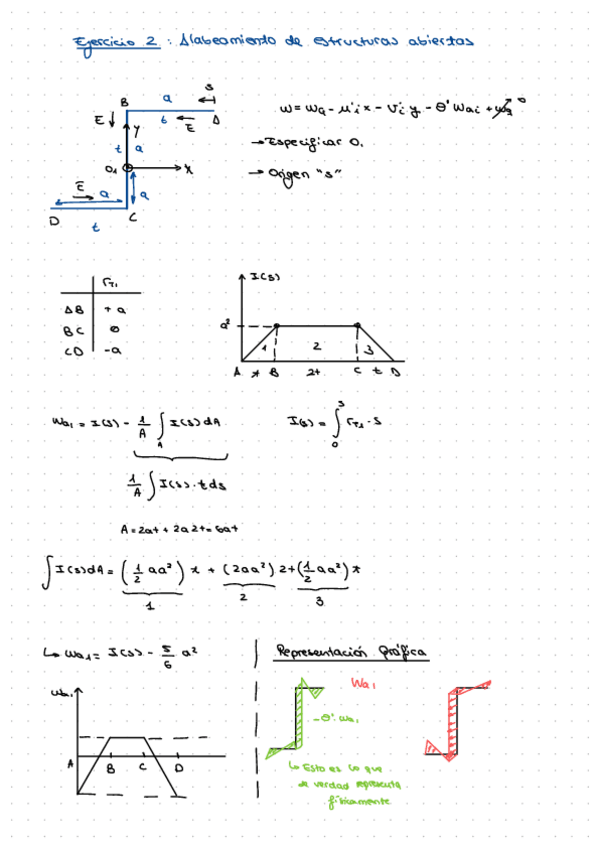 Ejercicio 2 : Alabeamiento de estructuras abiertas
B a s
E t E A
y
t a
O₁ x
E a a
D C
t
w = w_a - u'_i x - v'_i y - θ' w_ai + w_0 0
→ Especificar O₁
→ Origen "s"
r_T1
AB + a
BC 0
CD -a
I(s)
a²
1 2 3
A t B 2t C t D
w_a1 = I(s) - 1/A ∫_A I(s) dA
I(s) = ∫_0^s r_T1 · s
1/A ∫ I(s) · t ds
A = 2at + 2a2t = 6at
∫ I(s) dA = (1/2 aa²) t + (2aa²) 2t (1/2 aa²) t
1 2 3
↳ w_a1 = I(s) - 5/6 a²
Representación gráfica
w_a1
A B C D
w_a1
-θ' · w_a1
↳ Esto es lo que
de verdad representa
físicamente